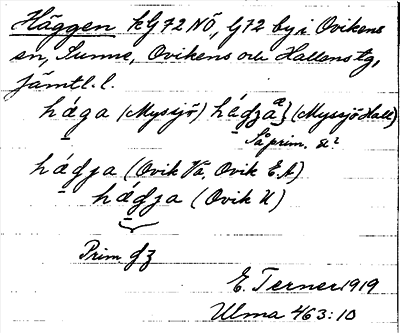 Häggen kG 72 NÖ, G72 by i Ovikens
sn, Sunne, Ovikens och Hallens tg,
Jämtl. l.
hága (Myssjö) hádʒa} (Myssjö Hall)
Så prim. a²
hádja (Ovik Vä, Ovik E.A)
hádja (Ovik U)
Prim dʒ
E. Terner 1919
Ulma 463:10